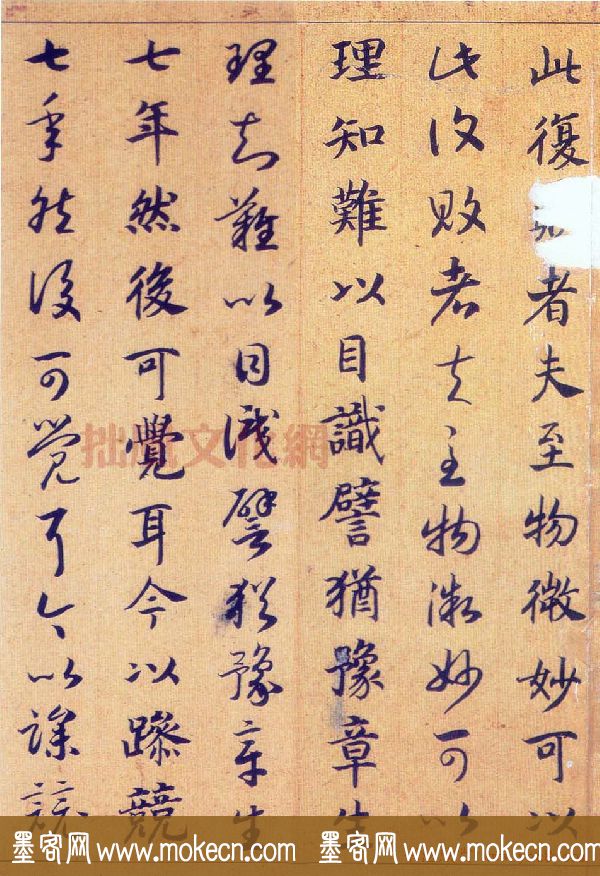 此復者夫至物微妙可以
此復敗者夫至物微妙可以
理知難以目識譬猶豫章生
理知難以目識譬猶豫章生
七年然後可覺耳今以躁競
七年然後可覺耳今以躁競
拙風文化網
墨客网 www.mokecn.com 墨客网 www.mokecn.com